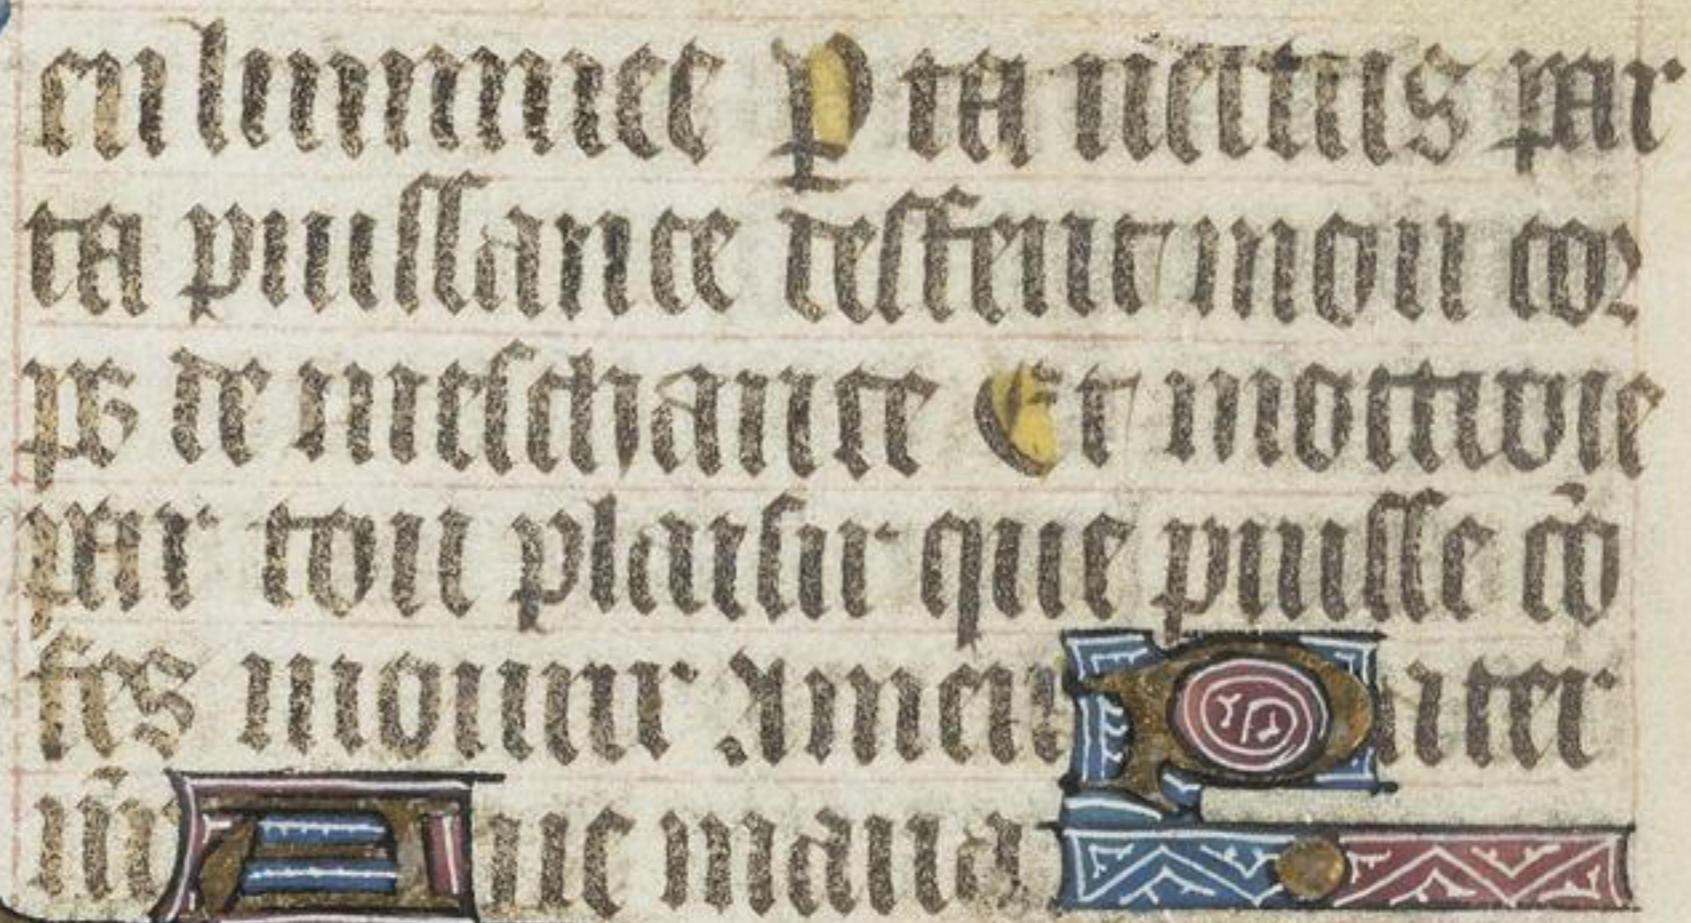 enluminee Par ta uertus par
ta puissance deffent mon cor
ps de meschance Et mottroie
par ton plaisir que puisse cō
fes mourir Amen Pater
nr̄ Aue maria